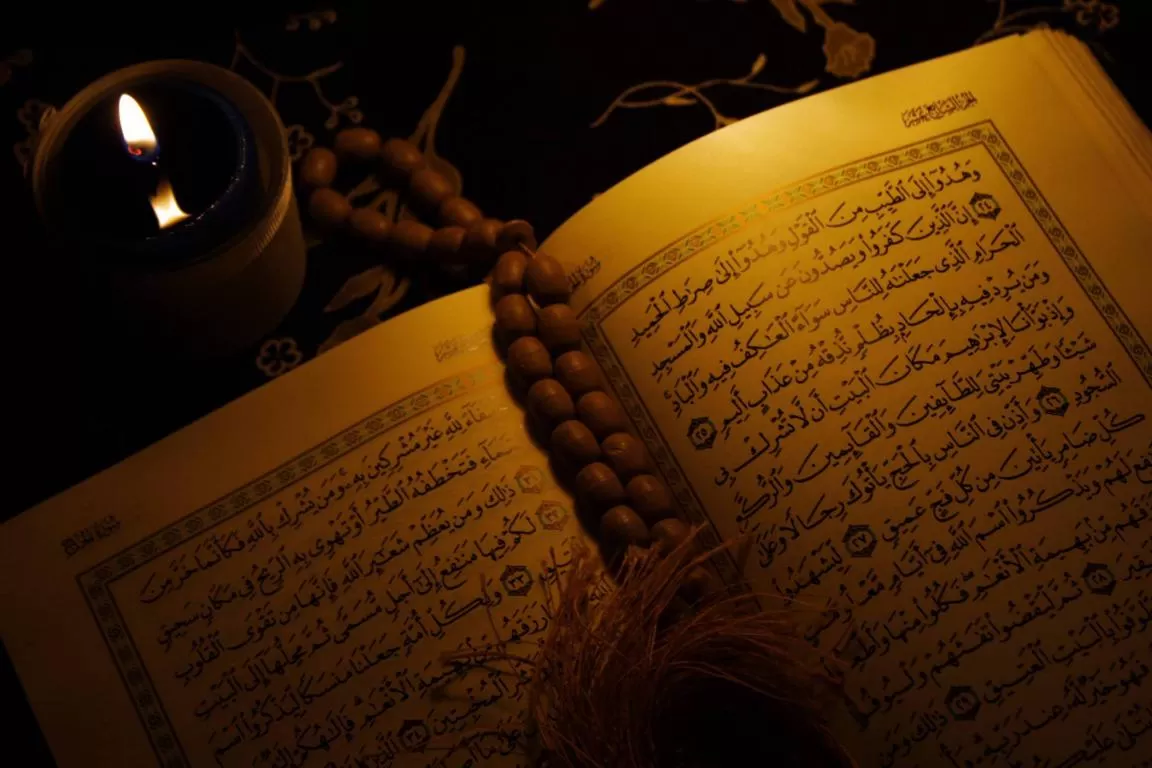 الجزء السابع عشر
وَهُدُوٓا۟ إِلَى ٱلطَّيِّبِ مِنَ ٱلْقَوْلِ وَهُدُوٓا۟ إِلَىٰ صِرَٰطِ ٱلْحَمِيدِ
٢٤ إِنَّ ٱلَّذِينَ كَفَرُوا۟ وَيَصُدُّونَ عَن سَبِيلِ ٱللَّهِ وَٱلْمَسْجِدِ
ٱلْحَرَامِ ٱلَّذِى جَعَلْنَٰهُ لِلنَّاسِ سَوَآءً ٱلْعَٰكِفُ فِيهِ وَٱلْبَادِ
وَمَن يُرِدْ فِيهِ بِإِلْحَادٍۭ بِظُلْمٍ نُّذِقْهُ مِنْ عَذَابٍ أَلِيمٍ ٢٥
وَإِذْ بَوَّأْنَا لِإِبْرَٰهِيمَ مَكَانَ ٱلْبَيْتِ أَن لَّا تُشْرِكْ بِى
شَيْـًٔا وَطَهِّرْ بَيْتِىَ لِلطَّآئِفِينَ وَٱلْقَآئِمِينَ وَٱلرُّكَّعِ
ٱلسُّجُودِ ٢٦ وَأَذِّن فِى ٱلنَّاسِ بِٱلْحَجِّ يَأْتُوكَ رِجَالًا وَعَلَىٰ
كُلِّ ضَامِرٍ يَأْتِينَ مِن كُلِّ فَجٍّ عَمِيقٍ ٢٧ لِّيَشْهَدُوا۟
لَهُمْ وَيَذْكُرُوا۟ ٱسْمَ ٱللَّهِ فِىٓ أَيَّامٍ
مِّنۢ بَهِيمَةِ ٱلْأَنْعَٰمِ فَكُلُوا۟ مِنْهَا
٢٨ ثُمَّ لْيَقْضُوا۟ تَفَثَهُمْ وَلْيُوفُوا۟
بِٱلْبَيْتِ ٱلْعَتِيقِ ٢٩ ذَٰلِكَ وَمَن
فَهُوَ خَيْرٌ لَّهُۥ عِندَ رَبِّهِۦ
سورة الحج
لِلَّهِ غَيْرَ مُشْرِكِينَ بِهِۦ وَمَن يُشْرِكْ بِٱللَّهِ فَكَأَنَّمَا خَرَّ مِنَ
فَتَخْطَفُهُ ٱلطَّيْرُ أَوْ تَهْوِى بِهِ ٱلرِّيحُ فِى مَكَانٍ سَحِيقٍ
٣١ ذَٰلِكَ وَمَن يُعَظِّمْ شَعَٰٓئِرَ ٱللَّهِ فَإِنَّهَا مِن تَقْوَى ٱلْقُلُوبِ
٣٢ لَكُمْ فِيهَا مَنَٰفِعُ إِلَىٰٓ أَجَلٍ مُّسَمًّى ثُمَّ مَحِلُّهَآ إِلَى ٱلْبَيْتِ
٣٣ وَلِكُلِّ أُمَّةٍ جَعَلْنَا مَنسَكًا لِّيَذْكُرُوا۟ ٱسْمَ
بَهِيمَةِ ٱلْأَنْعَٰمِ فَإِلَٰهُكُمْ إِلَٰهٌ
ٱلْمُخْبِتِينَ ٣٤ ٱلَّذِينَ